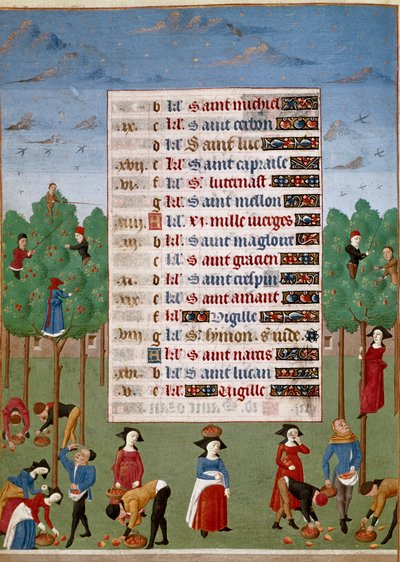 b kl' Saint michiel
.ix. c kl' Saint cerbon
d kl' Saint luc
.xvii. e kl' Saint capraise
.vi. f kl' St
g kl' Saint mellon
.xiiii. A kl' xi. mille vierges
b kl' Saint magloire
c kl' Saint gracien
d kl' Saint crespin
e kl' Saint amant
f kl' Vigille
.viii. g kl' St. symon. s. iude
A kl' Saint narcis
kl' Saint lucan
.v. c kl' Vigille